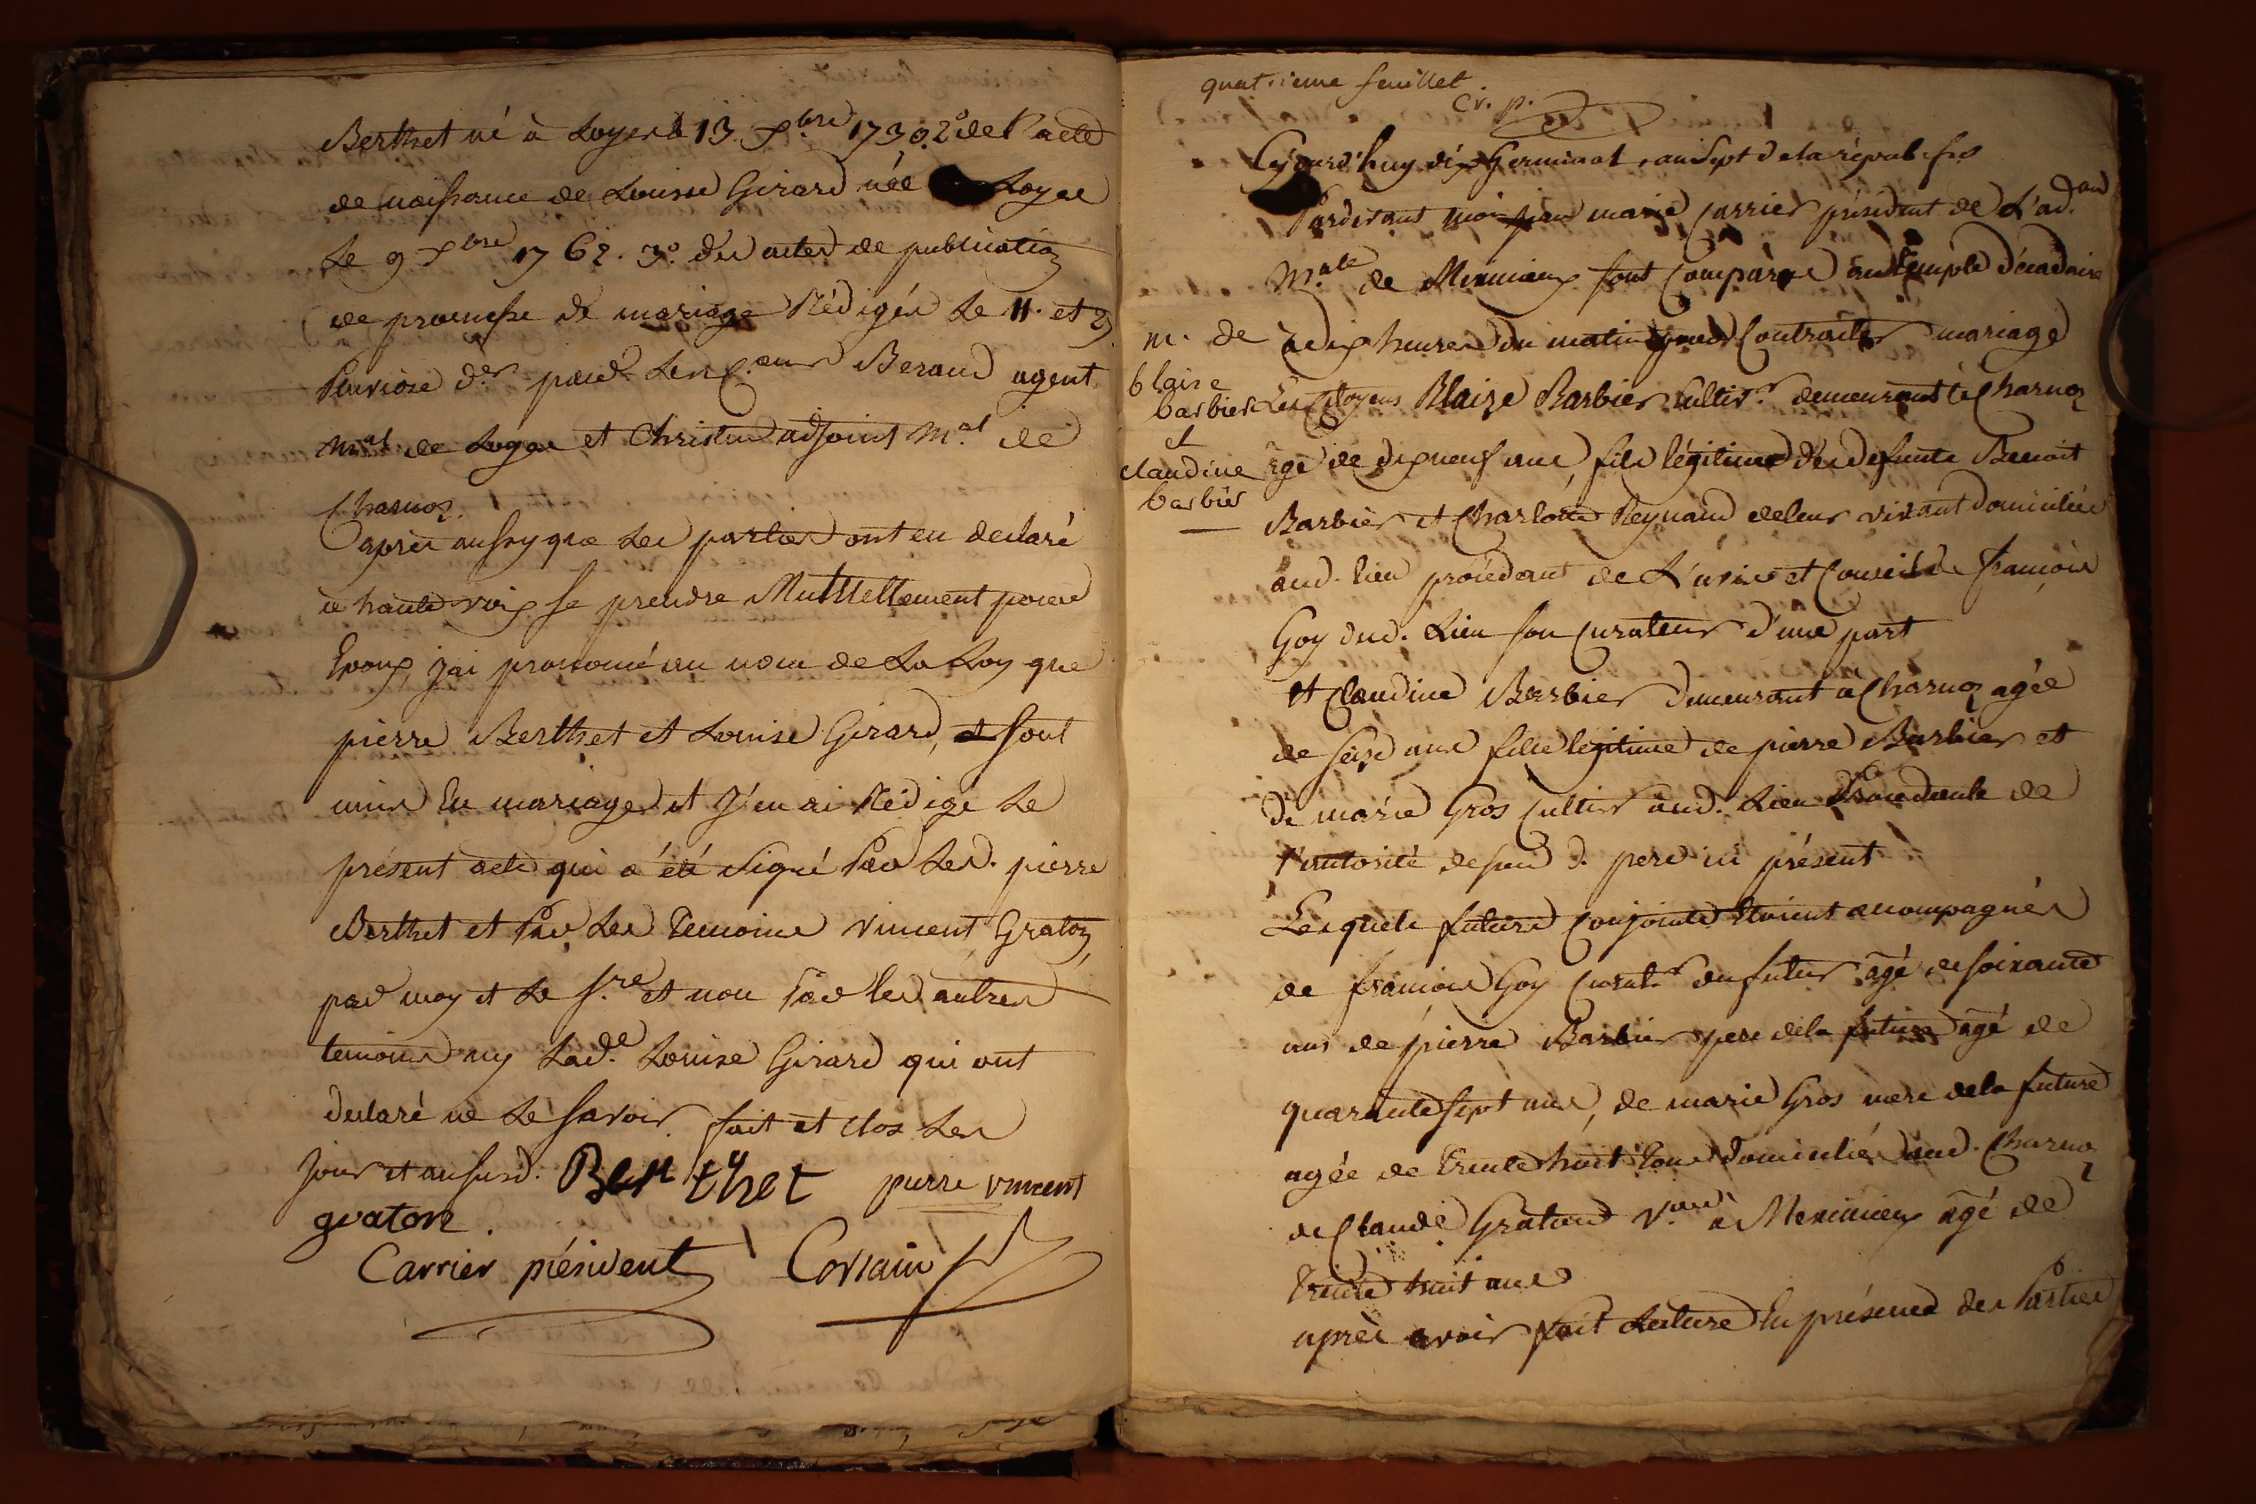 Berthet né à Loyes le 13 xbre 1730. 2° de l'acte
de naissance de Louise Girard née Loyes
le 9 xbre 1762. 3° des actes de publication
de promesse de mariage Rédigés le 11. et 29
Pluviose der par les c.ens Beraud agent
m.al de Loyes et Christin adjoint m.al de
Charnoz.
après aussy que les parties ont eu declaré
à haute voix se prendre Mutuellement pour
Epoux, j'ai prononcé au nom de La Loy que
pierre Berthet et Louise Girard, sont
unis En mariage et J'en ai Rédigé le
présent acte qui a été signé Par led. pierre
Berthet et Par les temoins vincent Graton,
par moy et le s.re et non Par les autres
temoins ny lad.e Louise Girard qui ont
declaré ne le savoir. fait et clos les
jour et an susd. Berthet pierre vincent
graton.
Carrier président Corsain
quatrieme feuillet
Cr. p.
Cejourd'huy dix Germinal, an sept de la répub. frse
Pardevant moi jean marie Carrier président de L'ad.on
m.ale de Meximieux sont Comparus au Temple décadaire
à dix heures du matin pour Contracter mariage
m. de
blaise
barbier
et
claudine
barbier
Les Citoyens Blaize Barbier cultiv.r demeurant à Charnoz
âgé de dix neuf ans, fils légitime des defunts Benoit
Barbier et Charlotte Reynaud de leur vivant domiciliés
aud. lieu procédant de L'avis et Conseil de françois
Goy dud. Lieu son curateur d'une part
et Claudine Barbier demeurant à Charnoz agée
de seize ans fille légitime de pierre Barbier et
de marie Gros cultivr aud. Lieu procedante de
l'autorité de sond. pere ici présent
Lesquels futurs conjoints Etoient accompagnés
de françois Goy curat.r du futur âgé de soixante
ans de pierre Barbier pere de la future âgé de
quarante sept ans, de marie Gros mere de la future
agée de trente huit tous domiciliés aud. Charnoz
de Claude Gratard à Meximieux âgé de
trente huit ans
après avoir fait Lecture En présence des Parties